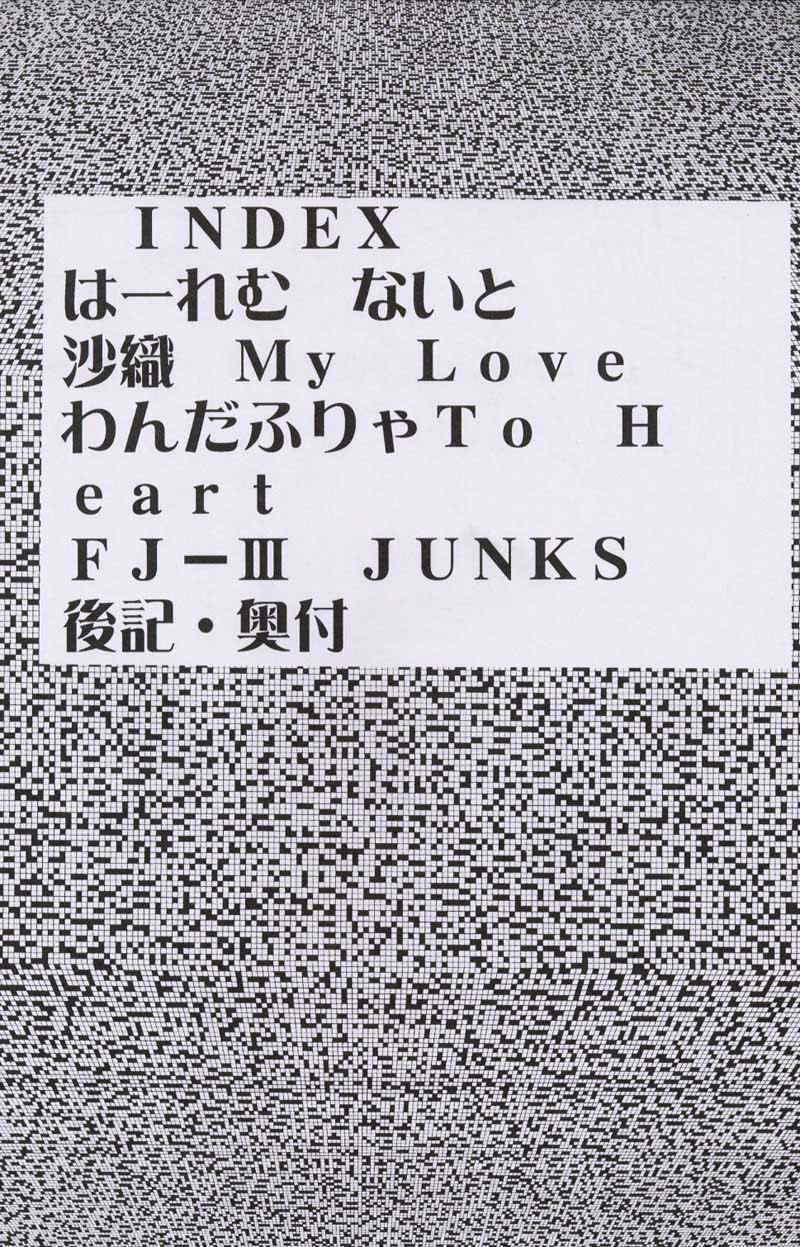 INDEX
はーれむ　ないと
沙織　My　Love
わんだふりゃTo　H
eart
FJ－Ⅲ　JUNKS
後記・奥付